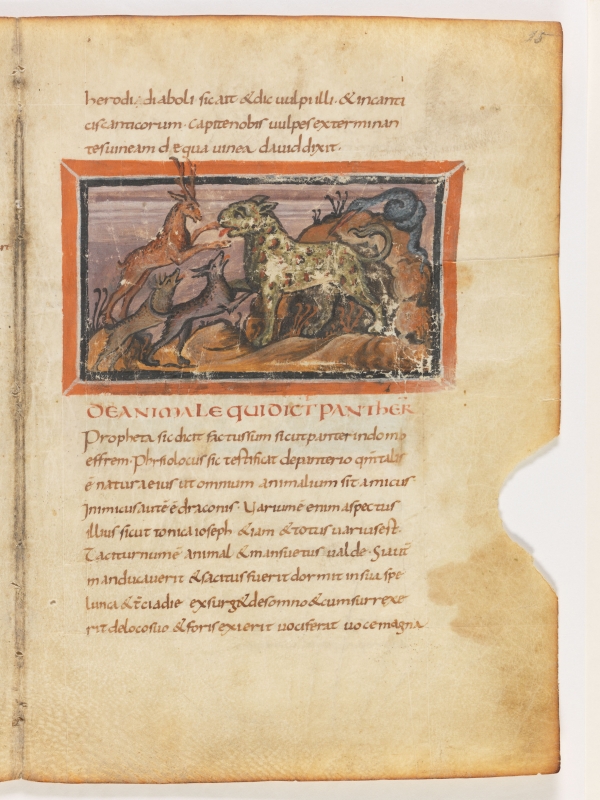 15
herodi; diaboli sic ait & dic uulpi illi · & in canti
cis canticorum · capite nobis uulpes exterminan
tes uineam de qua uinea dauid dixit ·
DE ANIMALE QUI DICT PANTHER
Propheta sic dicit factus sum sicut panter in domo
effrem · Phisiolocus sic testificat de panterio qm talis
ē natura eius ut omnium animalium sit amicus
Inimicus autē ē draconis · Uarium ē enim aspectus
illius sicut tonica ioseph & iam & totus uarius est ·
Taciturnum ē animal & mansuetus ualde · Si aut
manducauerit & sacitus fuerit dormit in sua spe
lunca & tercia die exsurg& de somno & cum surrexe
rit de loco suo & foris exierit uociferat uoce magna